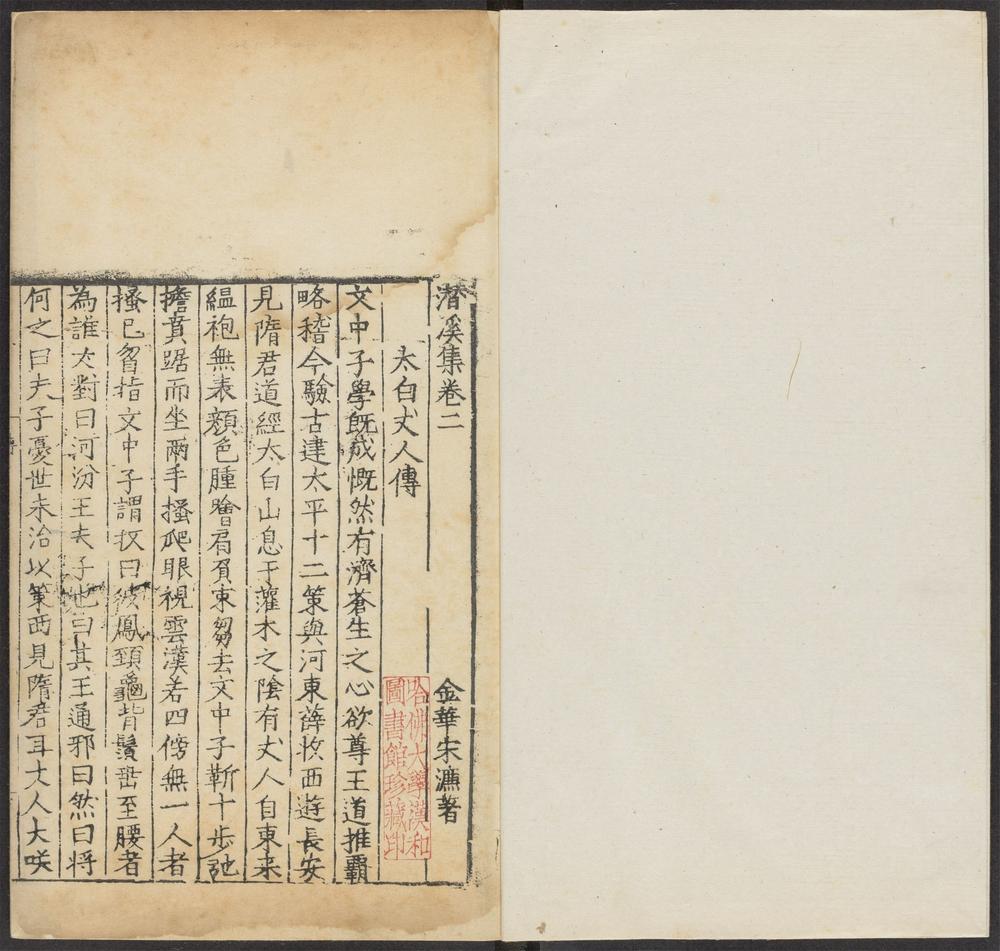 潛溪集卷二
金華宋濂著
太白丈人傳
文中子學既成慨然有濟蒼生之心欲尊王道推霸
略稽今驗古建太平十二策與河東薛收西遊長安
見隋君道經太白山息于灌木之陰有丈人自東来
緼袍無表顔色腫噲肩負束芻去文中子靳十步弛
擔蕡踞而坐兩手搔爬眼視雲漢若四傍無一人者
搔已曾指文中子謂收曰彼鳳頸龜背鬚垂至腰者
為誰大對曰河汾王夫子也曰其王通邪曰然曰将
何之曰夫子憂世未治以策西見隋君耳丈人大咲
哈佛大學漢和
圖書館珍藏印